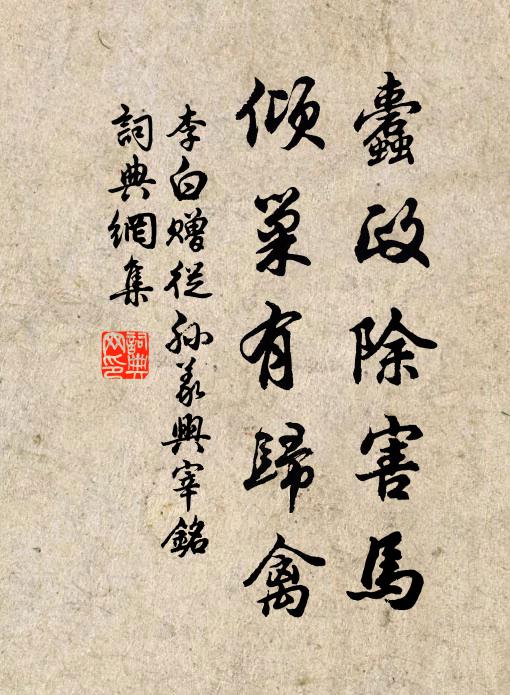 蠹政除害馬
傾巢有歸禽
李白贈從孫義興宰銘
詞典網集
詞典網印